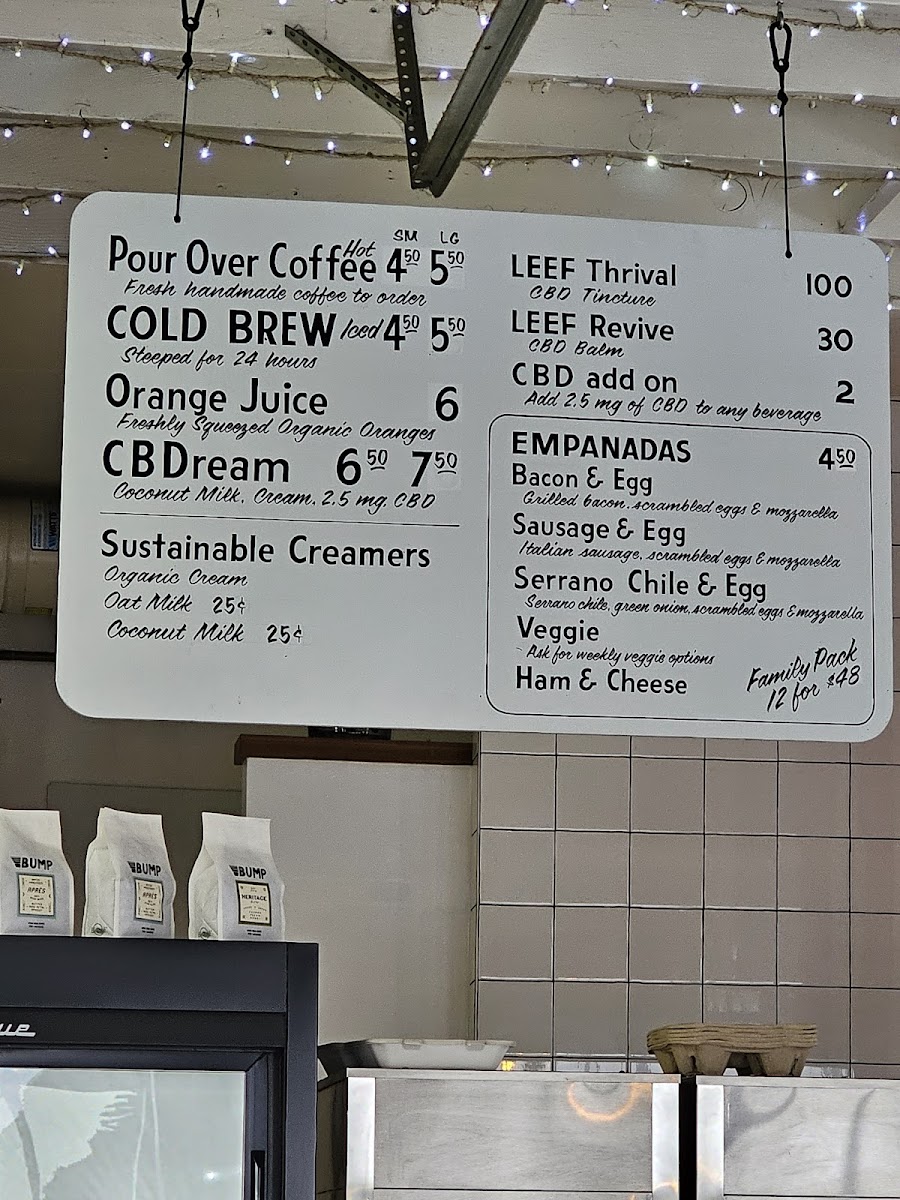 SM LG
Pour Over Coffee Hot 4 50 5 50
Fresh handmade coffee to order
COLD BREW Iced 4 50 5 50
Steeped for 24 hours
Orange Juice 6
Freshly Squeezed Organic Oranges
CBDream 6 50 7 50
Coconut Milk, Cream, 2.5 mg. CBD
Sustainable Creamers
Organic Cream
Oat Milk 25¢
Coconut Milk 25¢
LEEF Thrival 100
CBD Tincture
LEEF Revive 30
CBD Balm
CBD add on 2
Add 2.5 mg of CBD to any beverage
EMPANADAS 4 50
Bacon & Egg
Grilled bacon, scrambled eggs & mozzarella
Sausage & Egg
Italian sausage, scrambled eggs & mozzarella
Serrano Chile & Egg
Serrano chile, green onion, scrambled eggs & mozzarella
Veggie
Ask for weekly veggie options
Ham & Cheese
Family Pack
12 for $48
BUMP
APRÈS
BUMP
APRÈS
BUMP
HERITAGE
ue